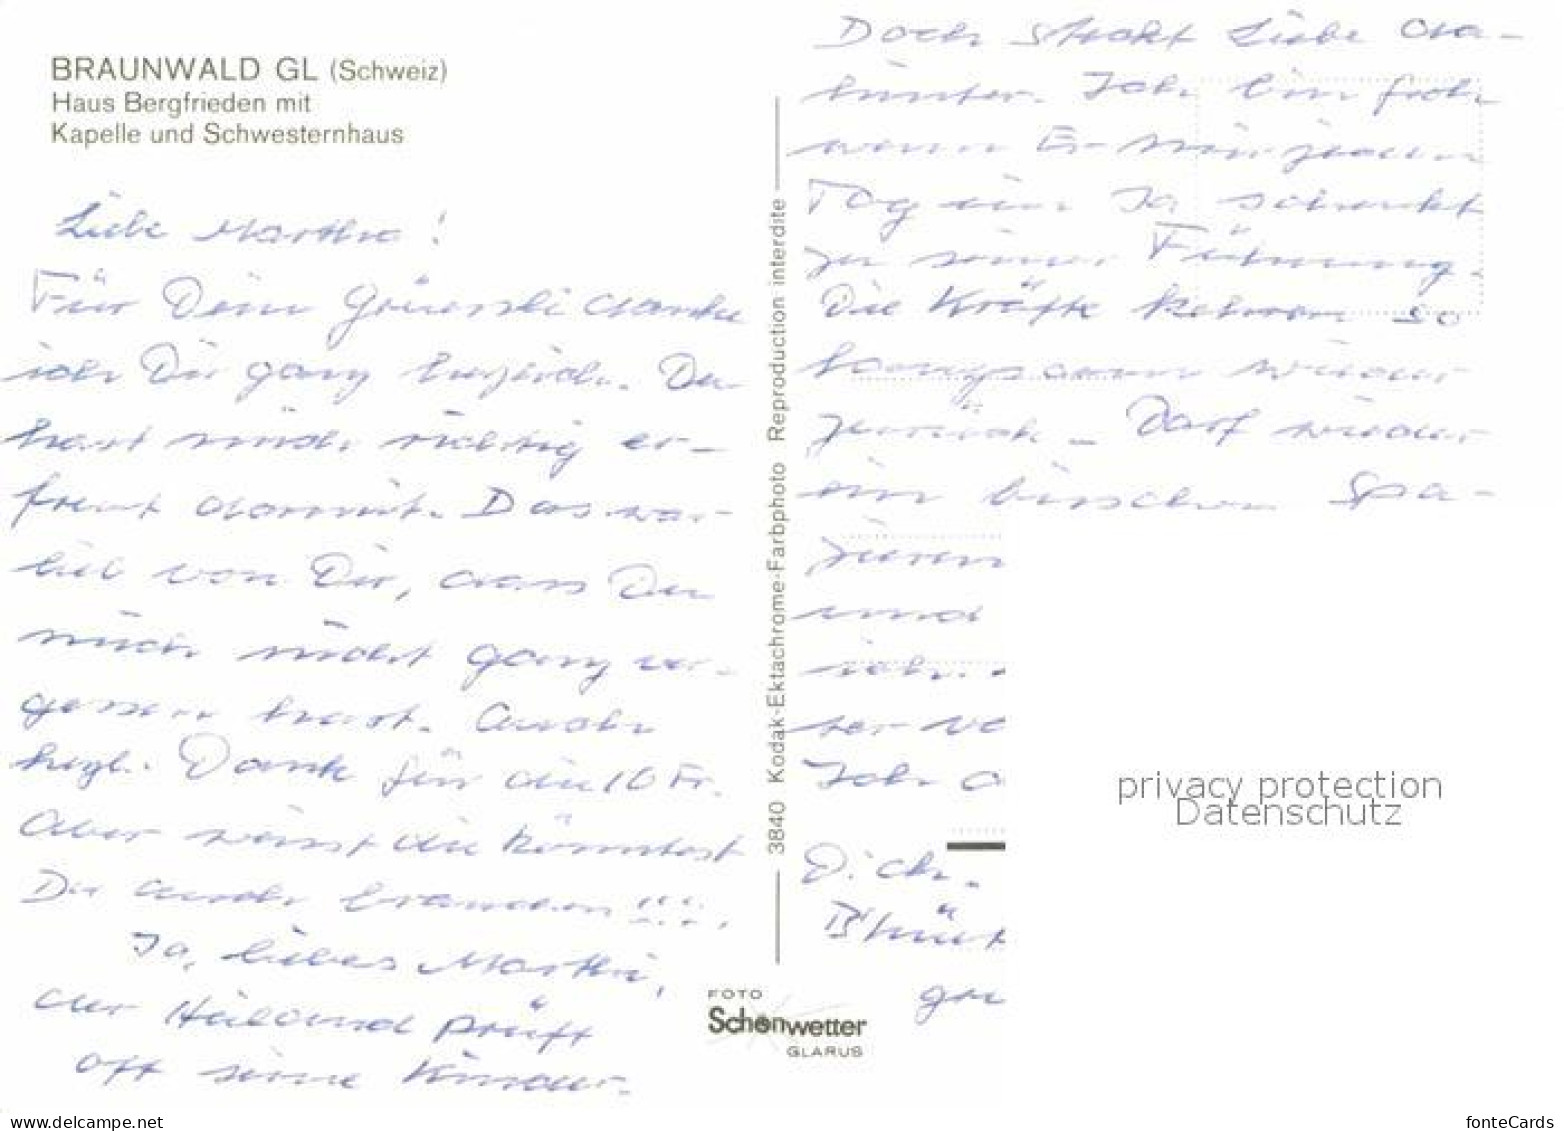 BRAUNWALD GL (Schweiz)
Haus Bergfrieden mit
Kapelle und Schwesternhaus
Liebe Martha!
Für Dein Grüessli danke
ich Dir ganz herzlich. Du
hast mich richtig er-
freut damit. Das war
lieb von Dir, dass Du
mich nicht ganz ver-
gessen hast. Auch
hrzl. Dank für die 10 Fr.
Aber weist die könntest
Du auch brauchen !!!.
Ja, liebes Marthi,
der Heiland prüft
oft seine Kinder.
Doch steht Liebe da-
hinter. Ich bin froh
wenn Er mir jeden
Tag ein Ja schenkt
zu seiner Führung.
Die Kräfte kehren so
langsam wieder
zurück - Darf wieder
ein bischen Spa-
zieren
und
ich.
ter
Ich
Dich.
Bhüet
3840 Kodak-Ektachrome-Farbphoto Reproduction interdite
FOTO
Schönwetter
GLARUS
privacy protection
Datenschutz
www.delcampe.net
fonteCards